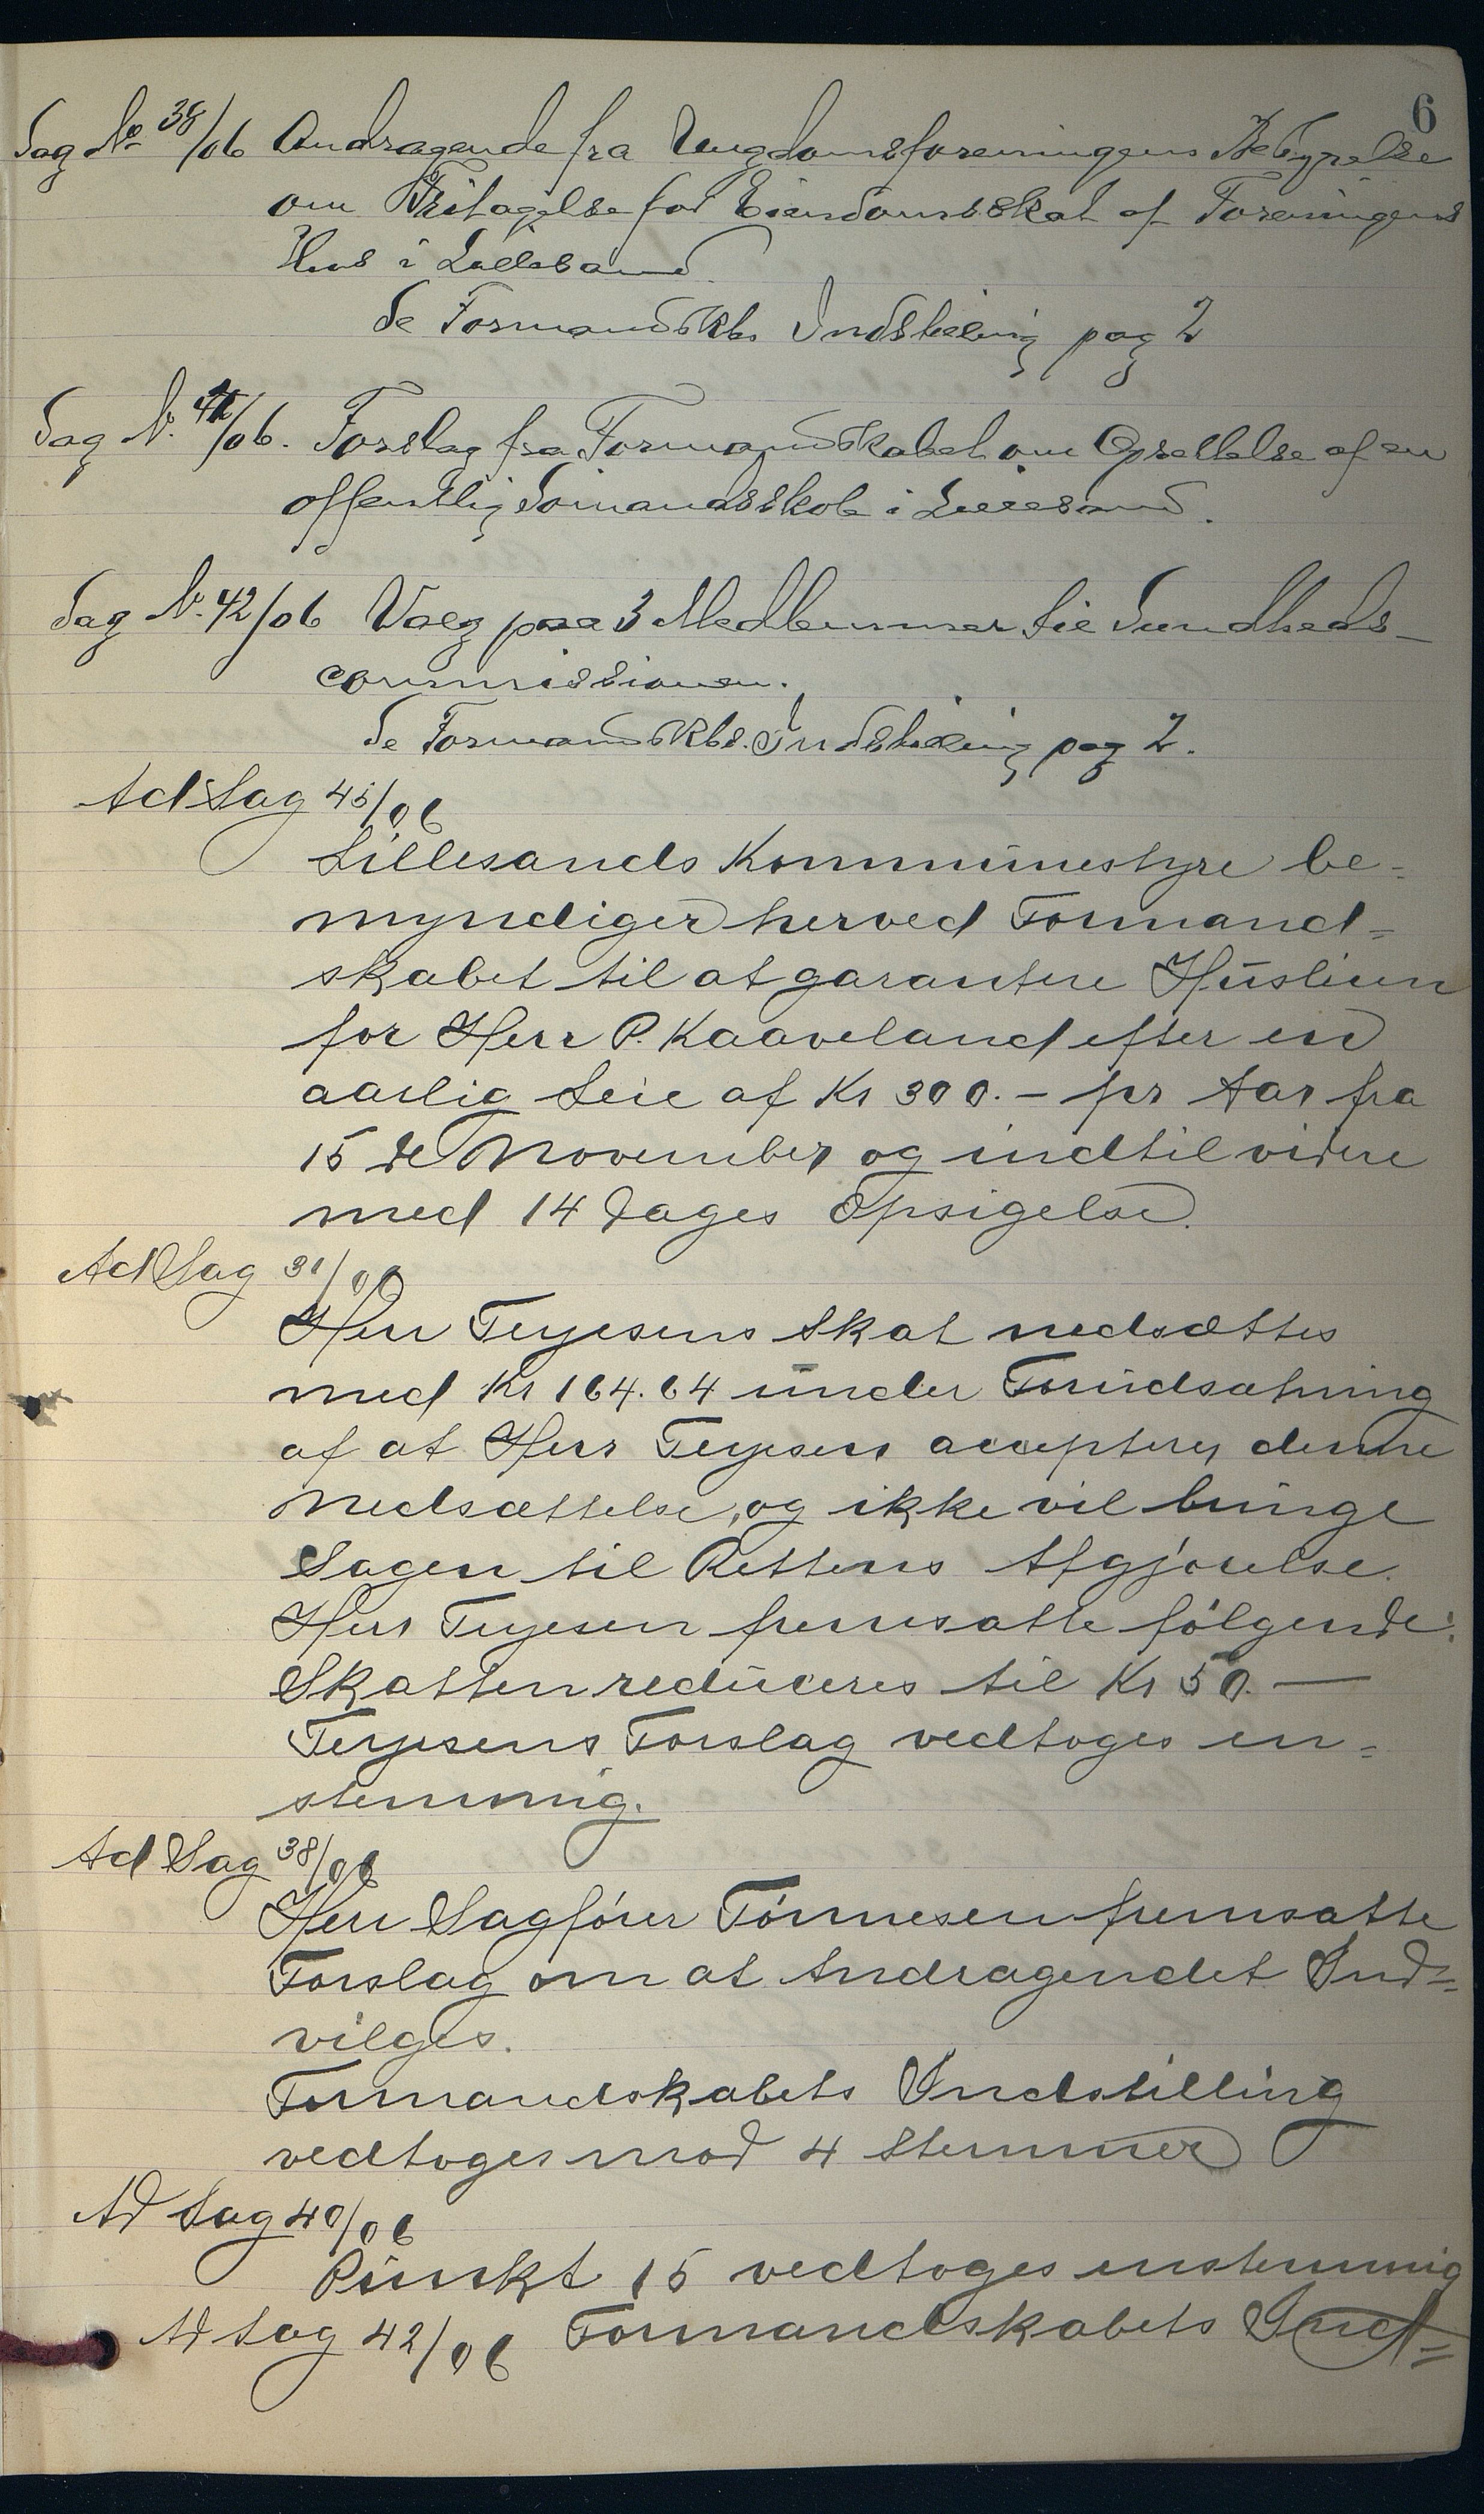 6
Sag No 38/06 Andragende fra Ungdomsforeningens Bestyrelse
om Fritagelse for Eiendomsskat af Foreningens
Hus i Lillesand
Se Formandskbs Indstilling pag 2
Sag N. 41/06. Forslag fra Formandskabet om Oprettelse af en
offentlig Sømandsskole i Lillesand.
Sag N. 42/06 Valg paa 3 Medlemmer til Sundheds-
commissionen.
Se Formandskbs. Indstilling pag 2.
Ad Sag 45/06
Lillesands Kommunestyre be-
myndiger herved Formand-
skabet til at garantere Husleien
for Herr P. Kaaveland efter en
aarlig Leie af Kr 300.- pr Aar fra
15 de November og indtil videre
med 14 Dages Opsigelse.
Ad Sag 31/06
Herr Terjesens Skat nedsættes
med Kr 164.64 under Forudsætning
af at Herr Terjesen accepterer denne
Nedsættelse, og ikke vil bringe
Sagen til Rettens Afgjørelse.
Herr Terjesen fremsatte følgende:
Skatten reduceres til Kr 50.—
Terjesens Forslag vedtoges en-
stemmig.
Ad Sag 38/06
Herr Sagfører Tønnesen fremsatte
Forslag om at Andragendet Ind-
vilges.
Formandskabets Indstilling
vedtoges mod 4 Stemmer
Ad Sag 40/06
Punkt 15 vedtoges enstemmig
Ad Sag 42/06 Formandskabets Ind-